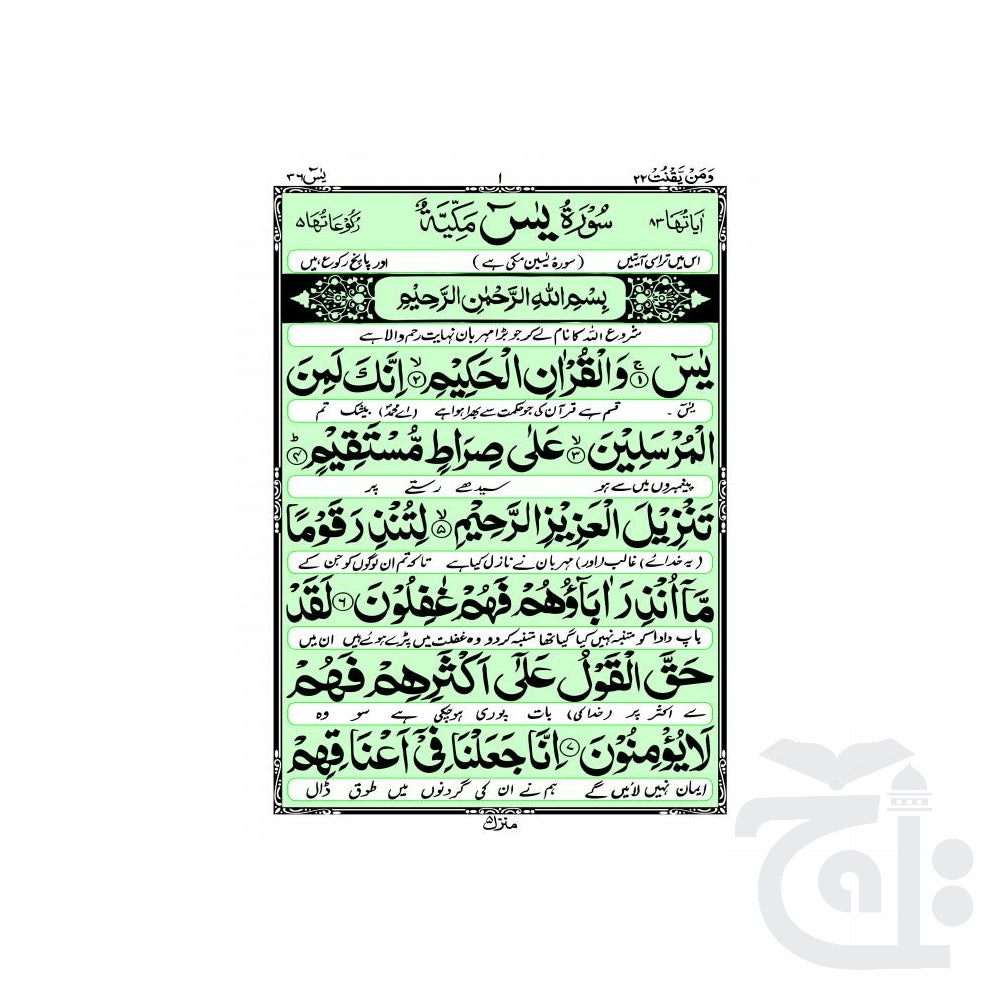 وَمَنْ يَّقْنُتْ ٢٢ ١ يٰسٓ ٣٦
اٰيَاتُهَا ٨٣ سُوْرَةُ يٰسٓ مَكِّيَّةٌ رُكُوْعَاتُهَا ٥
اس میں تراسی آیتیں (سورۂ یٰسین مکی ہے) اور پانچ رکوع ہیں
بِسْمِ اللهِ الرَّحْمٰنِ الرَّحِيْمِ
شروع اللہ کا نام لے کر جو بڑا مہربان نہایت رحم والا ہے
يٰسٓ ۚ‏﴿١﴾ وَالْقُرْاٰنِ الْحَكِيْمِ ۙ‏﴿٢﴾ اِنَّكَ لَمِنَ
یٰسٓ ۔ قسم ہے قرآن کی جو حکمت سے بھرا ہوا ہے (اے محمدؐ) بیشک تم
الْمُرْسَلِيْنَ ۙ‏﴿٣﴾ عَلٰى صِرَاطٍ مُّسْتَقِيْمٍ ؕ‏﴿٤﴾
پیغمبروں میں سے ہو سیدھے رستے پر
تَنْزِيْلَ الْعَزِيْزِ الرَّحِيْمِ ۙ‏﴿٥﴾ لِتُنْذِرَ قَوْمًا
(یہ خدائے) غالب (اور) مہربان نے نازل کیا ہے تاکہ تم ان لوگوں کو جن کے
مَّاۤ اُنْذِرَ اٰبَآؤُهُمْ فَهُمْ غٰفِلُوْنَ ﴿٦﴾ لَقَدْ
باپ دادا کو متنبہ نہیں کیا گیا تھا متنبہ کر دو وہ غفلت میں پڑے ہوئے ہیں ان میں
حَقَّ الْقَوْلُ عَلٰٓى اَكْثَرِهِمْ فَهُمْ
سے اکثر پر (خدا کی) بات پوری ہو چکی ہے سو وہ
لَا يُؤْمِنُوْنَ ﴿٧﴾ اِنَّا جَعَلْنَا فِىْٓ اَعْنَاقِهِمْ
ایمان نہیں لائیں گے ہم نے ان کی گردنوں میں طوق ڈال
منزل ٥
تاج